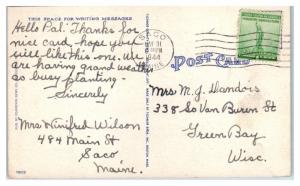 THIS SPACE FOR WRITING MESSAGES
Hello Pal: Thanks for
nice card, hope you
will like this one. We
are having grand weather
so busy planting.
Sincerely
Mrs Winifred Wilson
484 Main St
Saco
Maine.
SACO
MAY 31
PM
1944
MAINE
POST CARD
Mrs. M. J. Dandois
338 So Van Buren St
Green Bay
Wisc.